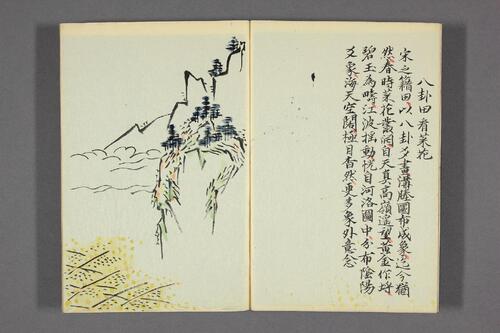 八卦田看菜花
宋之籍田以八卦爻畫溝塍圃布成象迄今猶
然春時菜花叢開自天真高嶺遥望黃金作埒
碧玉為疇江波摇動恍自河洛圖中分布陰陽
爻象海天空闊極目杳然更多象外意念